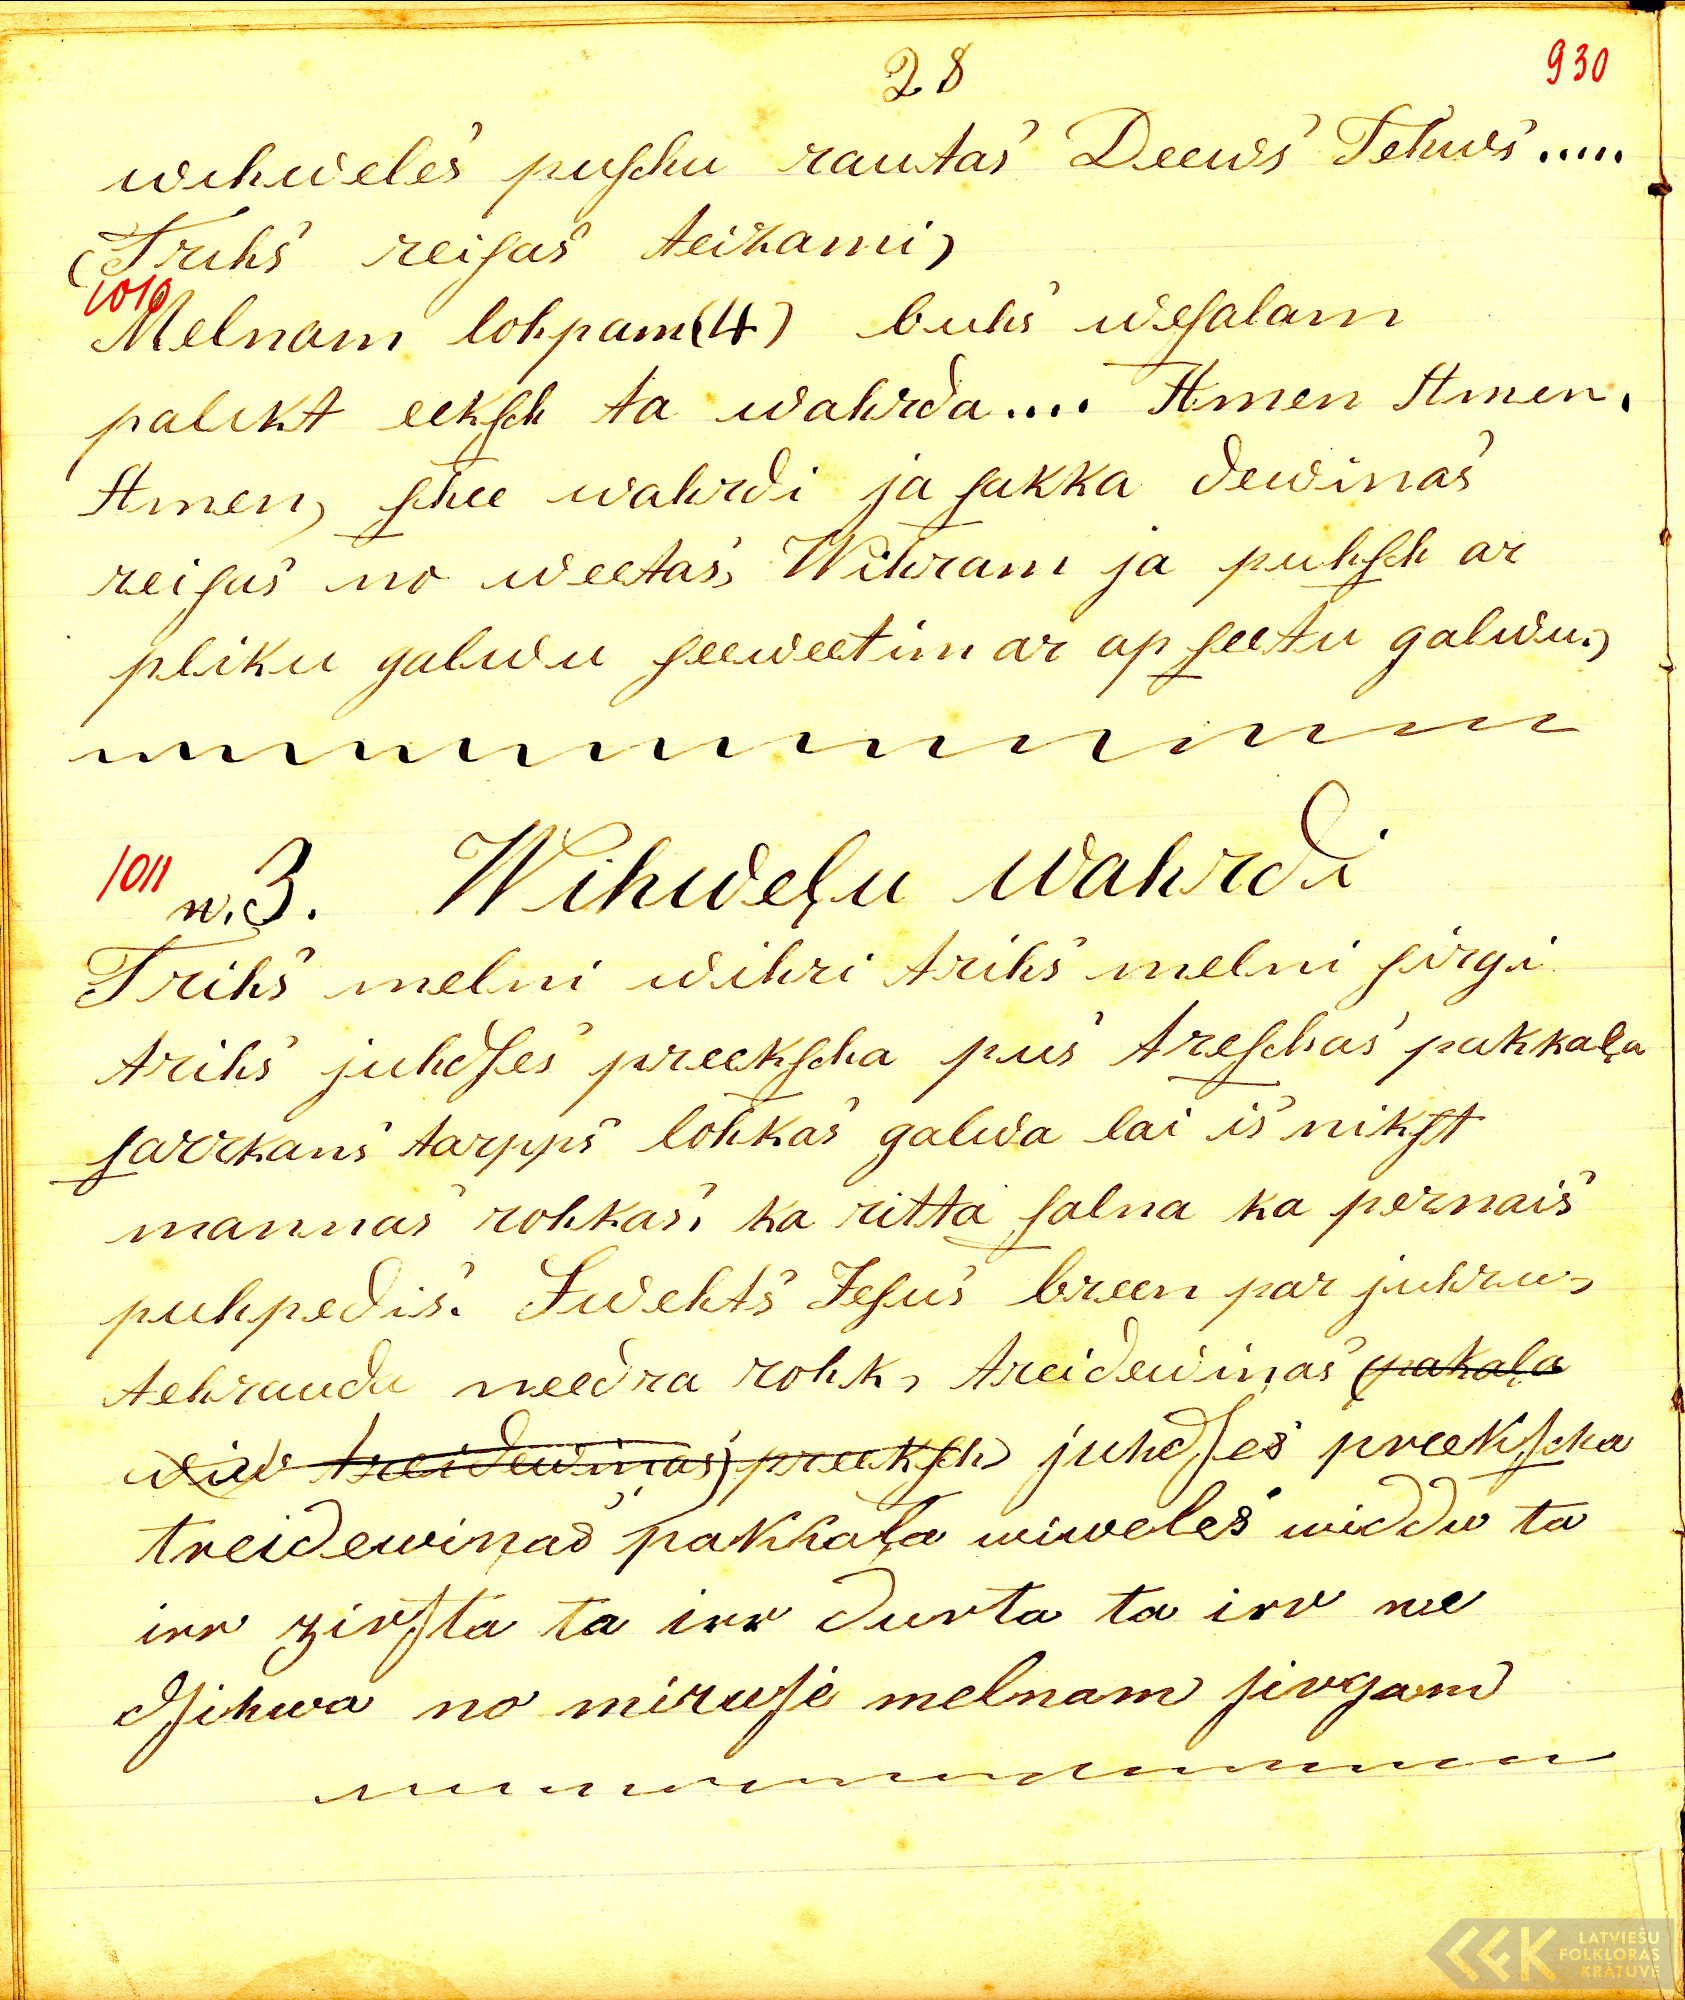 28
930
wihweles puſchu rautas Deews Tehws.....
(Trihs reiſas teizami)
1010
Melnam lohpam (4) buhs weſalam
palikt eekſch ta wahrda.... Amen Amen.
Amen, ſchee wahrdi ja ſakka dewinas
reiſas no weetas, Wihram ja puhſch ar
pliku galwu ſeeweetim ar ap ſeetu galwu,
1011 n. 3. Wihweļu wahrdi
Trihs melni wihri trihs melni ſirgi
trihs juhdſes preekſcha pus treſchas pakkaļa
ſarrkans tarpps lohkas galwa lai is nikſt
mannas rohkas, ka ritta ſalna ka pernais
puhpedis. Swehts Jeſus breen par juhru,
tehrauda needra rohk, treidewiņas (pakaļa
wiw treidewiņas) preekſch juhdſes preekſcha
treidewiņas pakkaļa wiweles widdu ta
irr zirſta ta irr durta ta irr ne
dſihwa no miruſi melnam ſirgam
LATVIEŠU
FOLKLORAS
KRĀTUVE